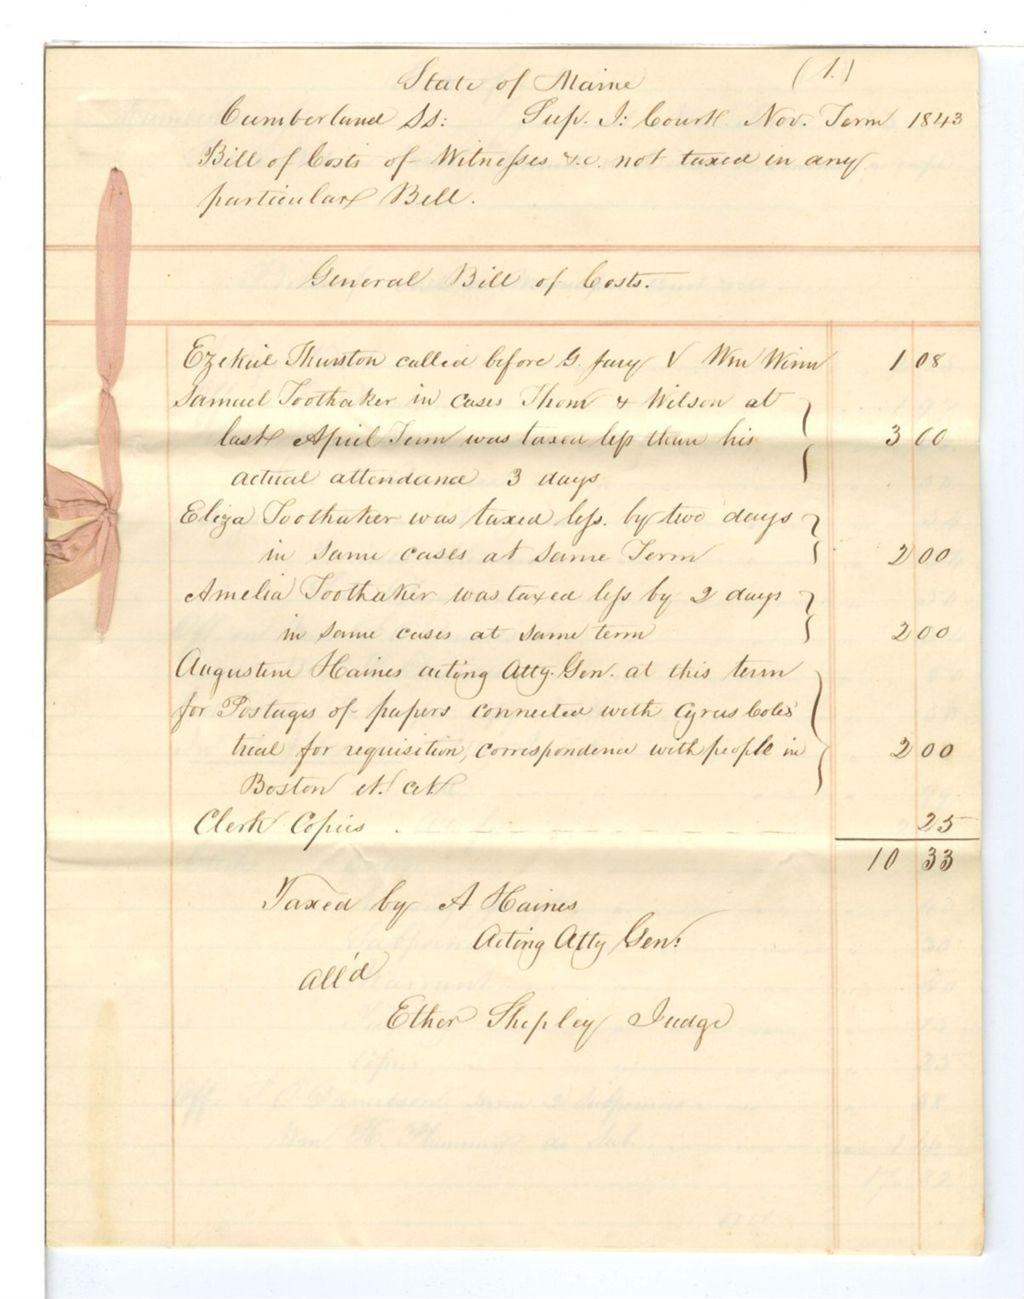 (1.)
State of Maine
Cumberland Ss: Sup. J: Court Nov. Term 1843
Bill of Costs of Witnesses &.c. not taxed in any
particular Bill.
General Bill of Costs.
Ezekiel Thurston called before G. Jury V Wm Winn 1 08
Samuel Toothaker in cases Thom & Wilson at
last April Term was taxed less than his 3 00
actual attendance 3 days
Eliza Toothaker was taxed less. by two days
in same cases at same Term 2 00
Amelia Toothaker was taxed less by 2 days
in same cases at same term 2 00
Augustine Haines acting Atty. Gen. at this term
for Postages of papers connected with Cyrus Coles'
trial for requisition, correspondence with people in 2 00
Boston et. cet
Clerk Copies 25
10 33
Taxed by A Haines
Acting Atty Gen:
All'd
Ether Shepley Judge